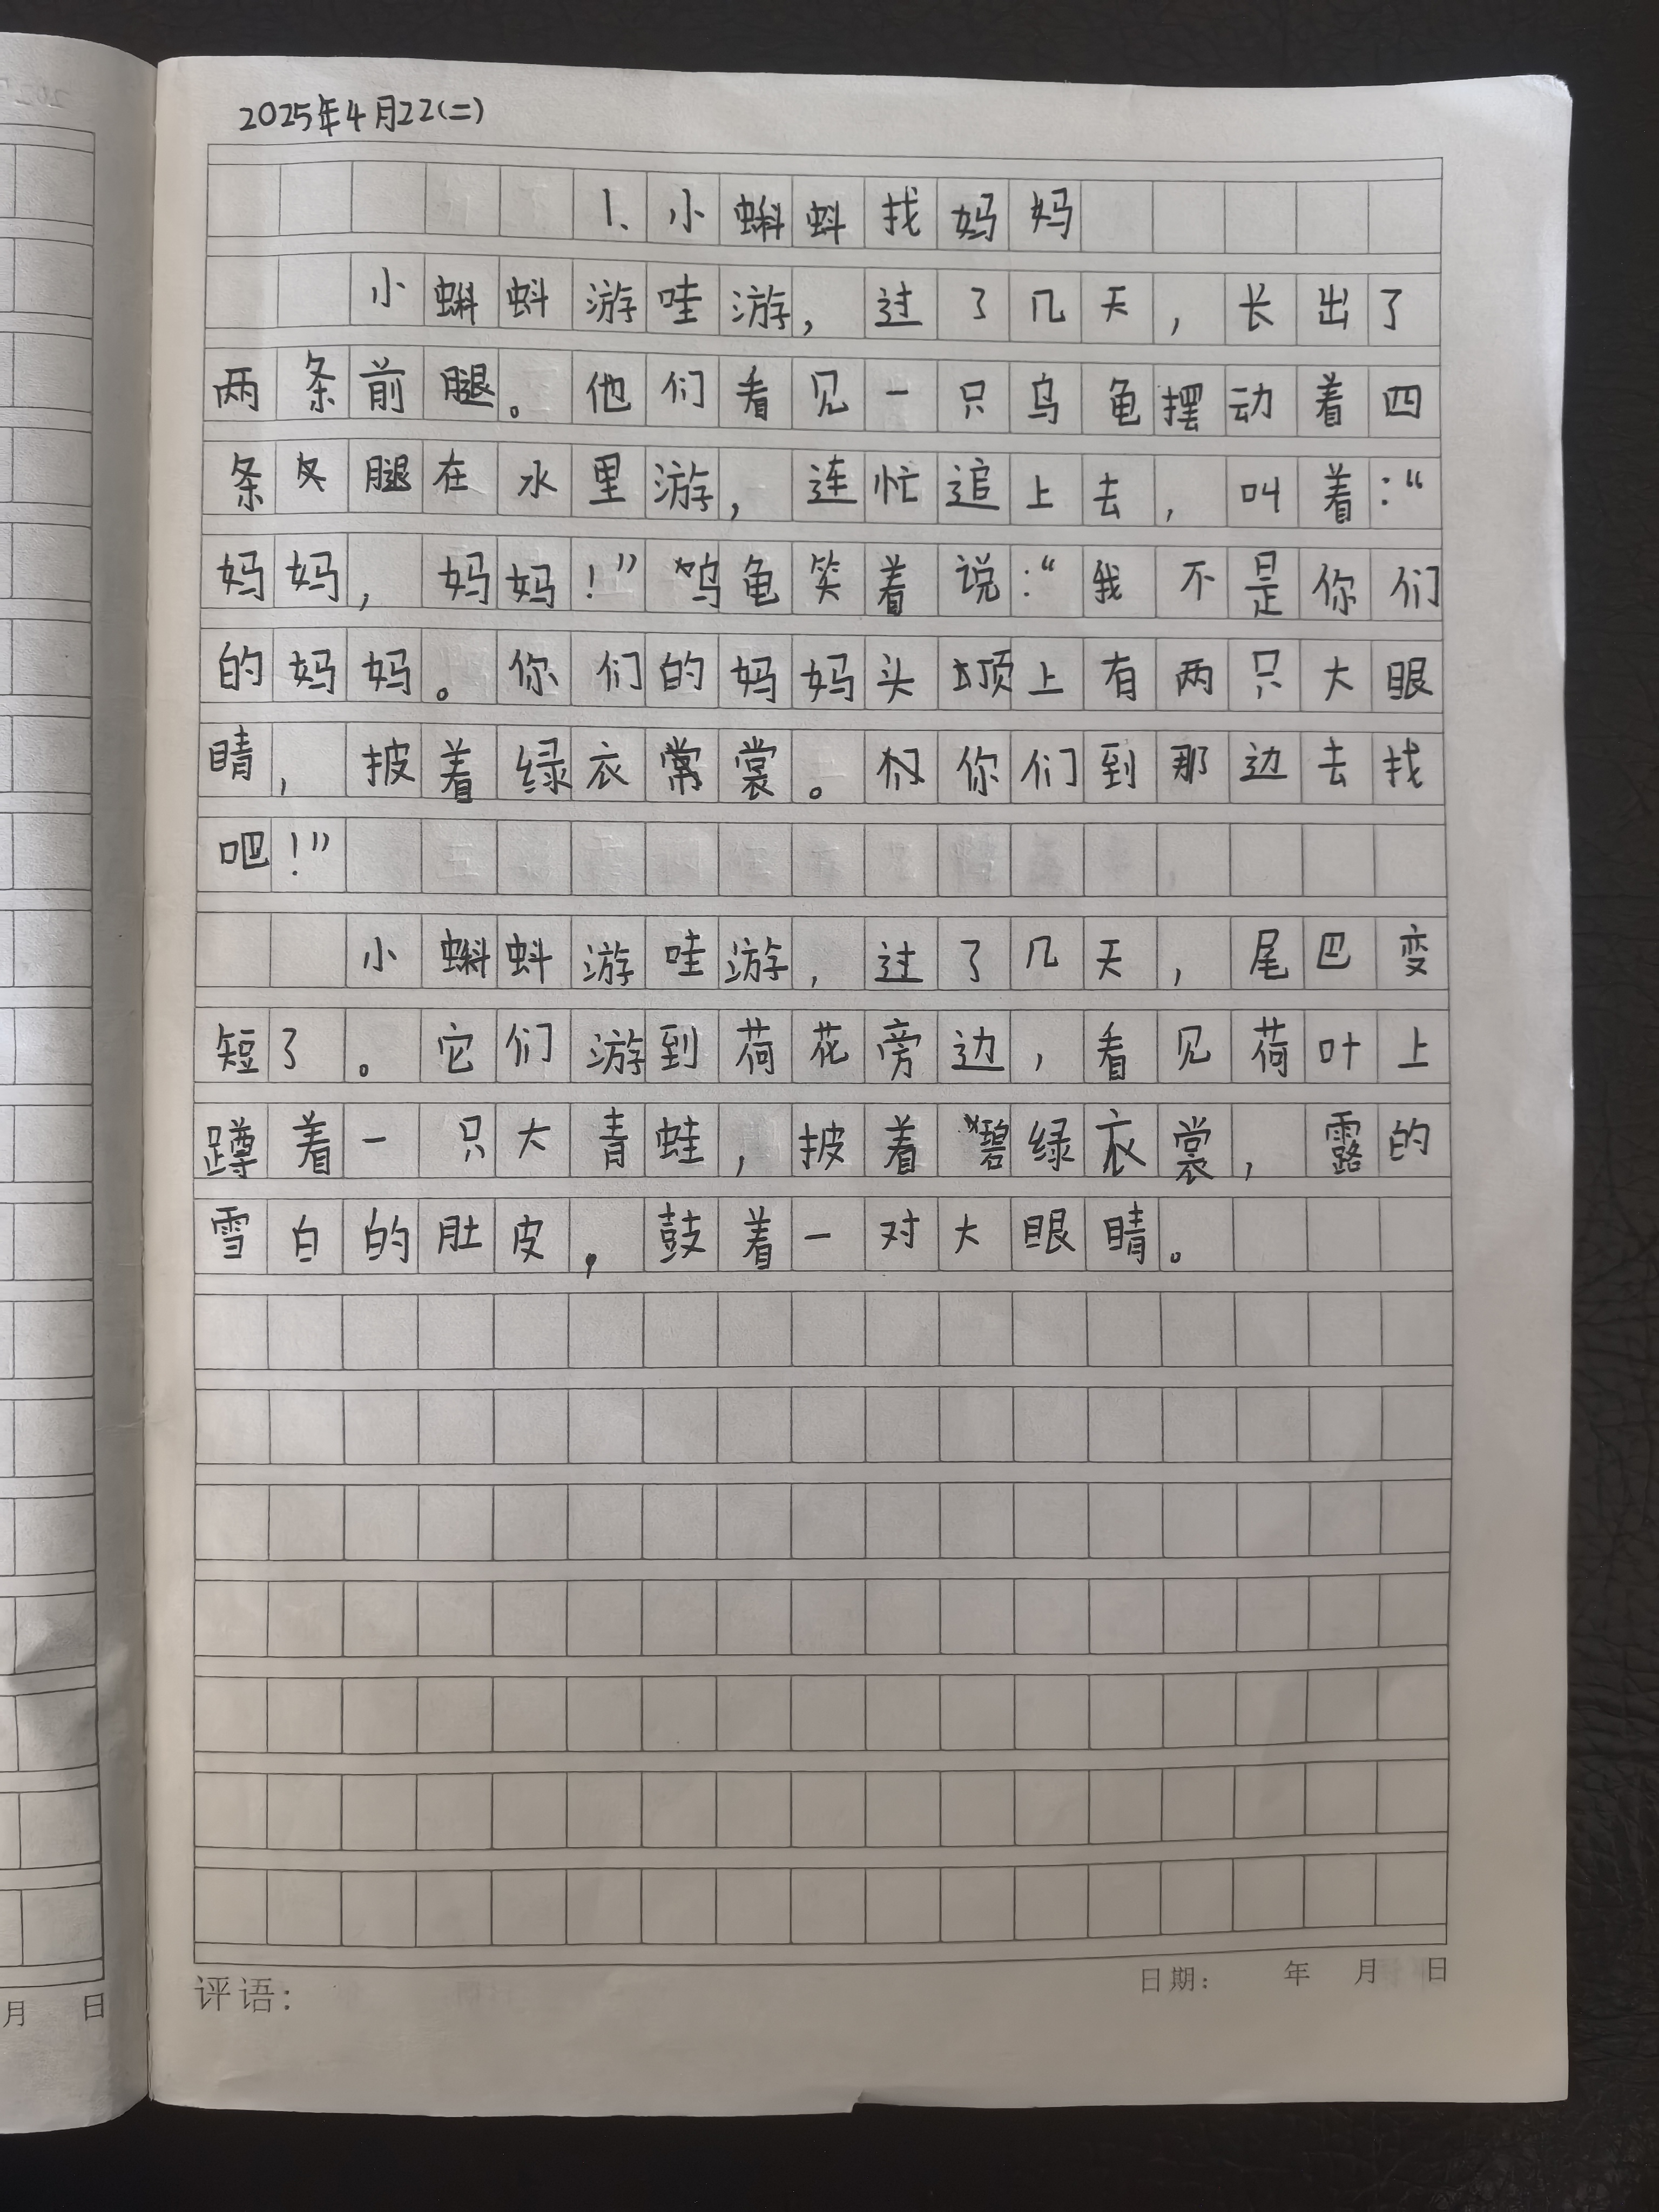 2025年4月22(二)
1、小蝌蚪找妈妈
小蝌蚪游哇游，过了几天，长出了
两条前腿。他们看见一只乌龟摆动着四
条腿在水里游，连忙追上去，叫着：“
妈妈，妈妈！”乌龟笑着说：“我不是你们
的妈妈。你们的妈妈头顶上有两只大眼
睛，披着绿衣裳。你们到那边去找
吧！”
小蝌蚪游哇游，过了几天，尾巴变
短了。它们游到荷花旁边，看见荷叶上
蹲着一只大青蛙，披着碧绿衣裳，露的
雪白的肚皮，鼓着一对大眼睛。
评语：
日期： 年 月 日
月 日